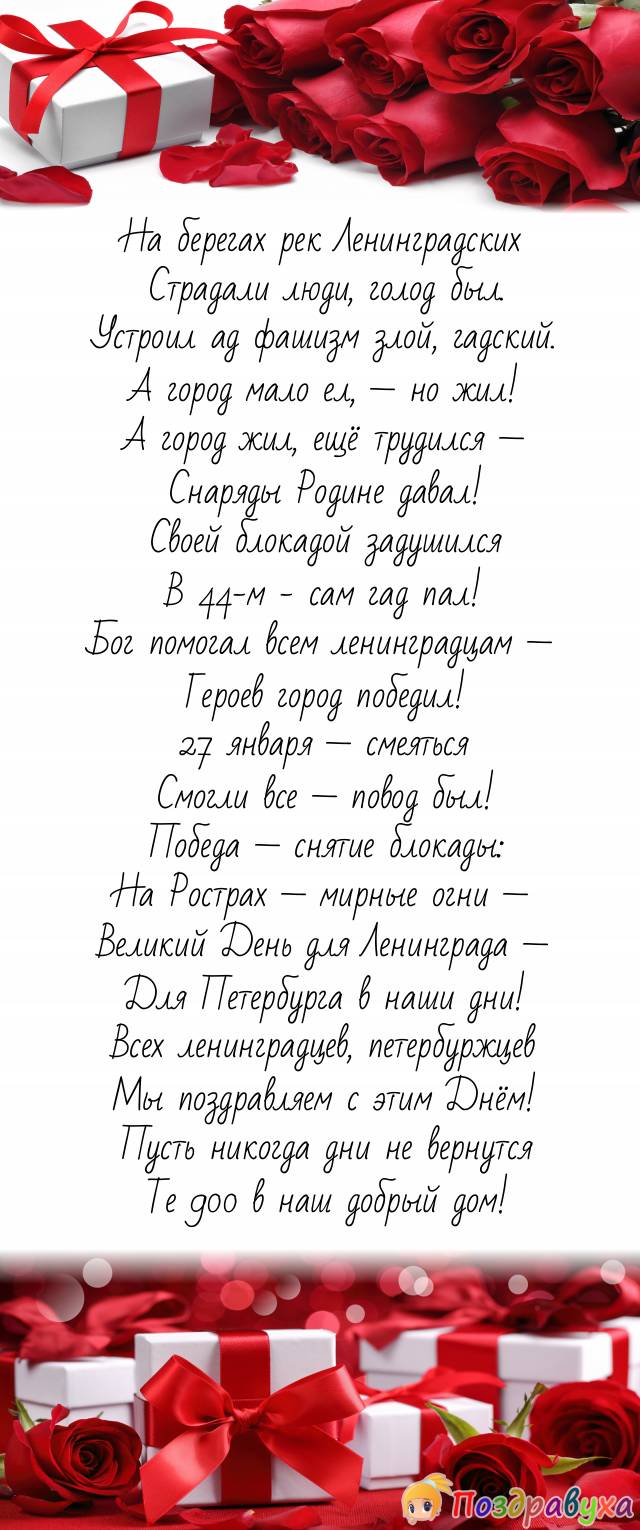 На берегах рек Ленинградских
Страдали люди, голод был.
Устроил ад фашизм злой, гадский.
А город мало ел, — но жил!
А город жил, ещё трудился —
Снаряды Родине давал!
Своей блокадой задушился
В 44-м - сам гад пал!
Бог помогал всем ленинградцам —
Героев город победил!
27 января — смеяться
Смогли все — повод был!
Победа — снятие блокады:
На Рострах — мирные огни —
Великий День для Ленинграда —
Для Петербурга в наши дни!
Всех ленинградцев, петербуржцев
Мы поздравляем с этим Днём!
Пусть никогда дни не вернутся
Те 900 в наш добрый дом!
Поздравуха